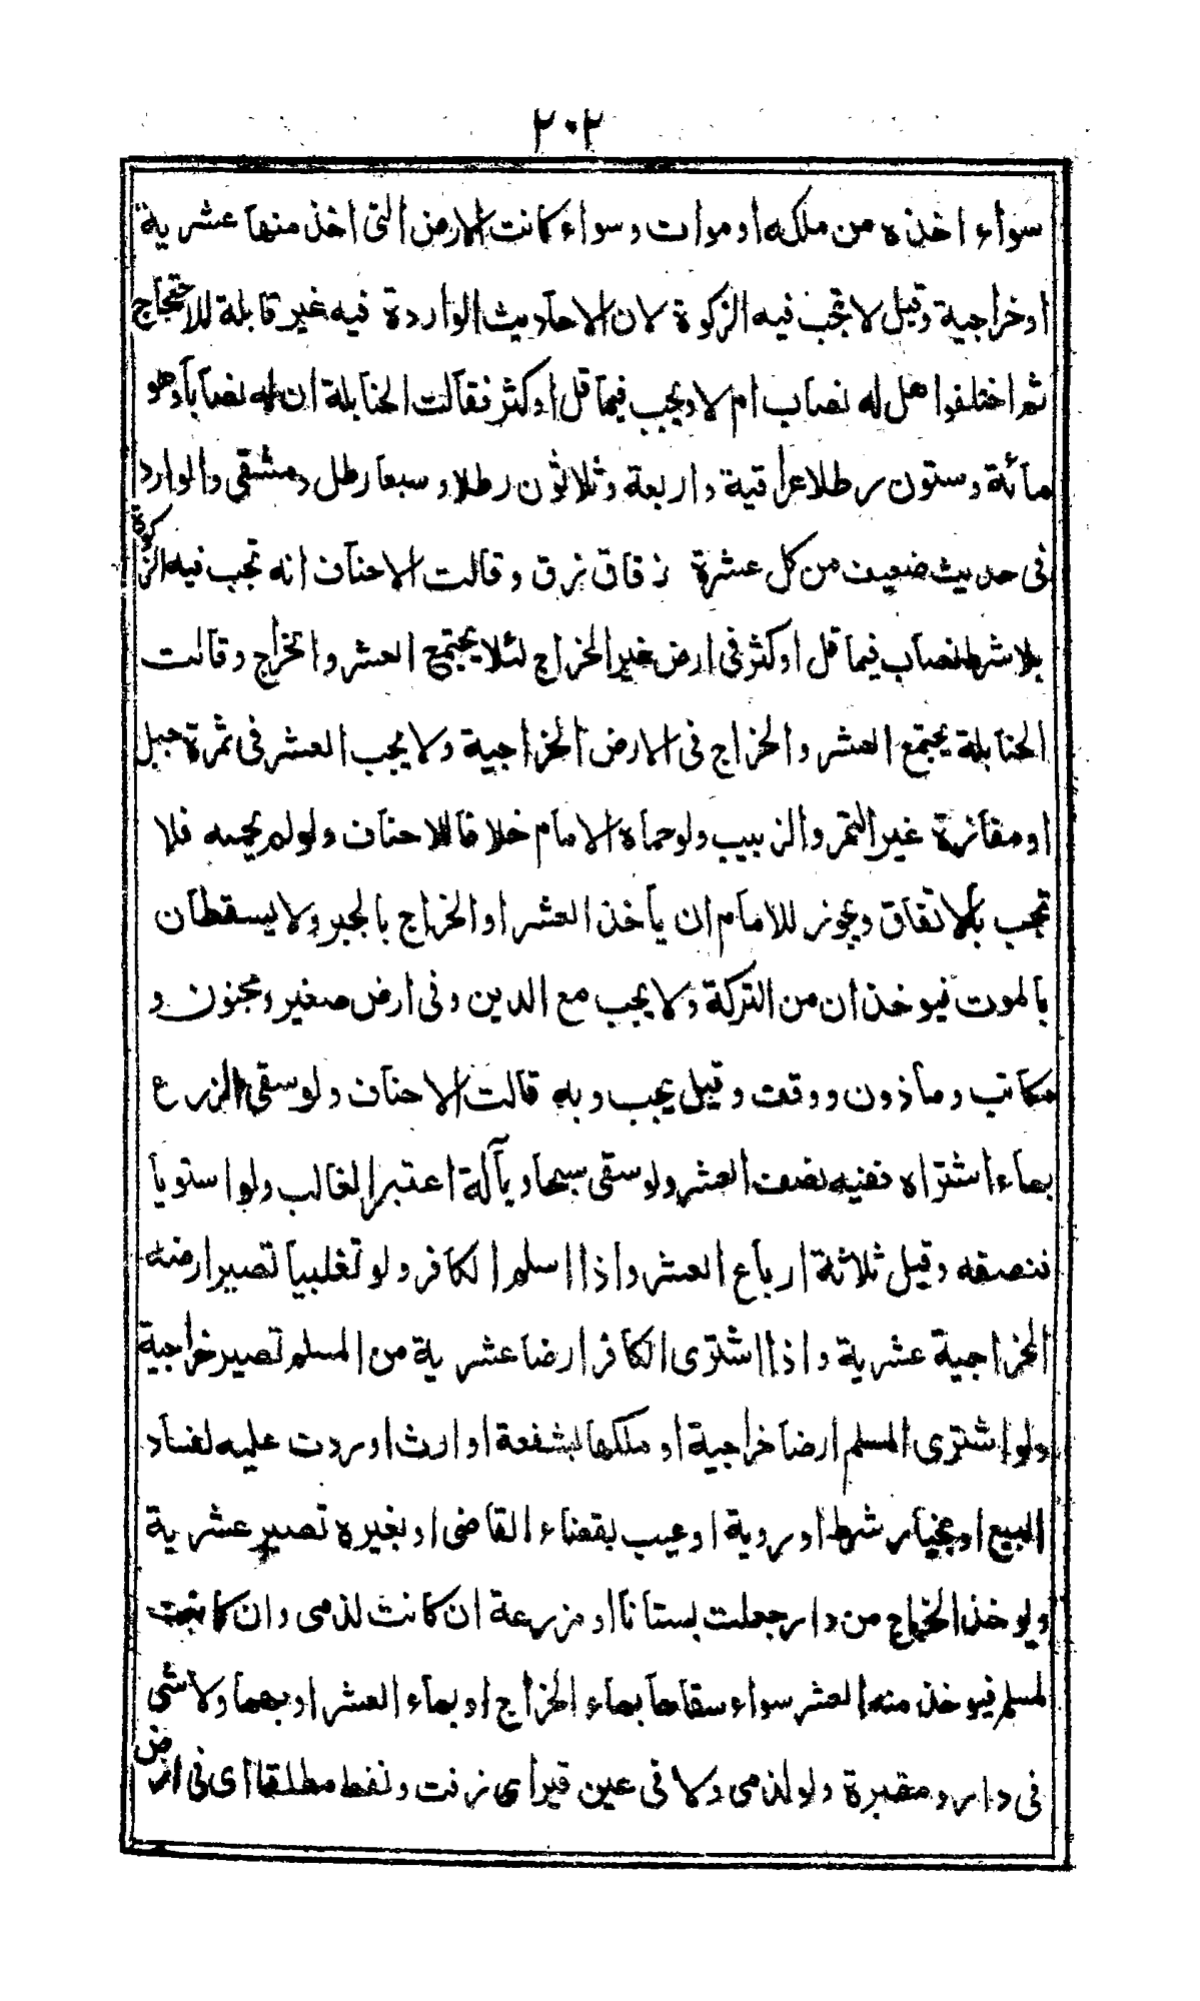 ٢٠٢
سواء اخذه من ملكه او موات وسواء كانت الارض التى اخذ منها عشرية
او خراجية وقيل لا تجب فيه الزكوة لان الاحاديث الواردة فيه غير قابلة للاحتجاج
ثم اختلفوا هل له نصاب ام لا ويجب فيما قل او كثر فقالت الحنابلة ان له نصابا وهو
مائة وستون رطلا عراقية واربعة وثلاثون رطلا وسبعا رطل دمشقى والوارد
فى حديث ضعيف من كل عشرة زقاق زق وقالت الاحناف انه تجب فيه الزكوة
بلا شرط نصاب فيما قل او كثر فى ارض غير الخراج لئلا يجتمع العشر والخراج وقالت
الحنابلة يجتمع العشر والخراج فى الارض الخراجية ولا يجب العشر فى ثمرة جبل
او مفازة غير التمر والزبيب ولو حماه الامام خلافا للاحناف ولو لم يحمه فلا
تجب بالاتفاق ويجوز للامام ان يأخذ العشر او الخراج بالجبر ولا يسقطان
بالموت فيوخذان من التركة ولا يجب مع الدين وفى ارض صغير ومجنون و
مكاتب ومأذون ووقف وقيل يجب وبه قالت الاحناف ولو سقى الزرع
بماء اشتراه ففيه نصف العشر ولو سقى سيحا وبآلة اعتبر الغالب ولو استويا
فنصفه وقيل ثلاثة ارباع العشر واذا اسلم الكافر ولو تغلبيا تصير ارضه
الخراجية عشرية واذا اشترى الكافر ارضا عشرية من المسلم تصير خراجية
ولو اشترى المسلم ارضا خراجية او ملكها بشفعة او ارث او ردت عليه لفساد
البيع او بخيار شرط او روية او عيب بقضاء القاضى او بغيره تصير عشرية
ويوخذ الخراج من دار جعلت بستانا او مزرعة ان كانت لذمى وان كانت
لمسلم فيوخذ منه العشر سواء سقاها بماء الخراج او بماء العشر او بهما ولا شى
فى دار ومقبرة ولو لذمى ولا فى عين قير اى زفت ونفط مطلقا اى فى ارض